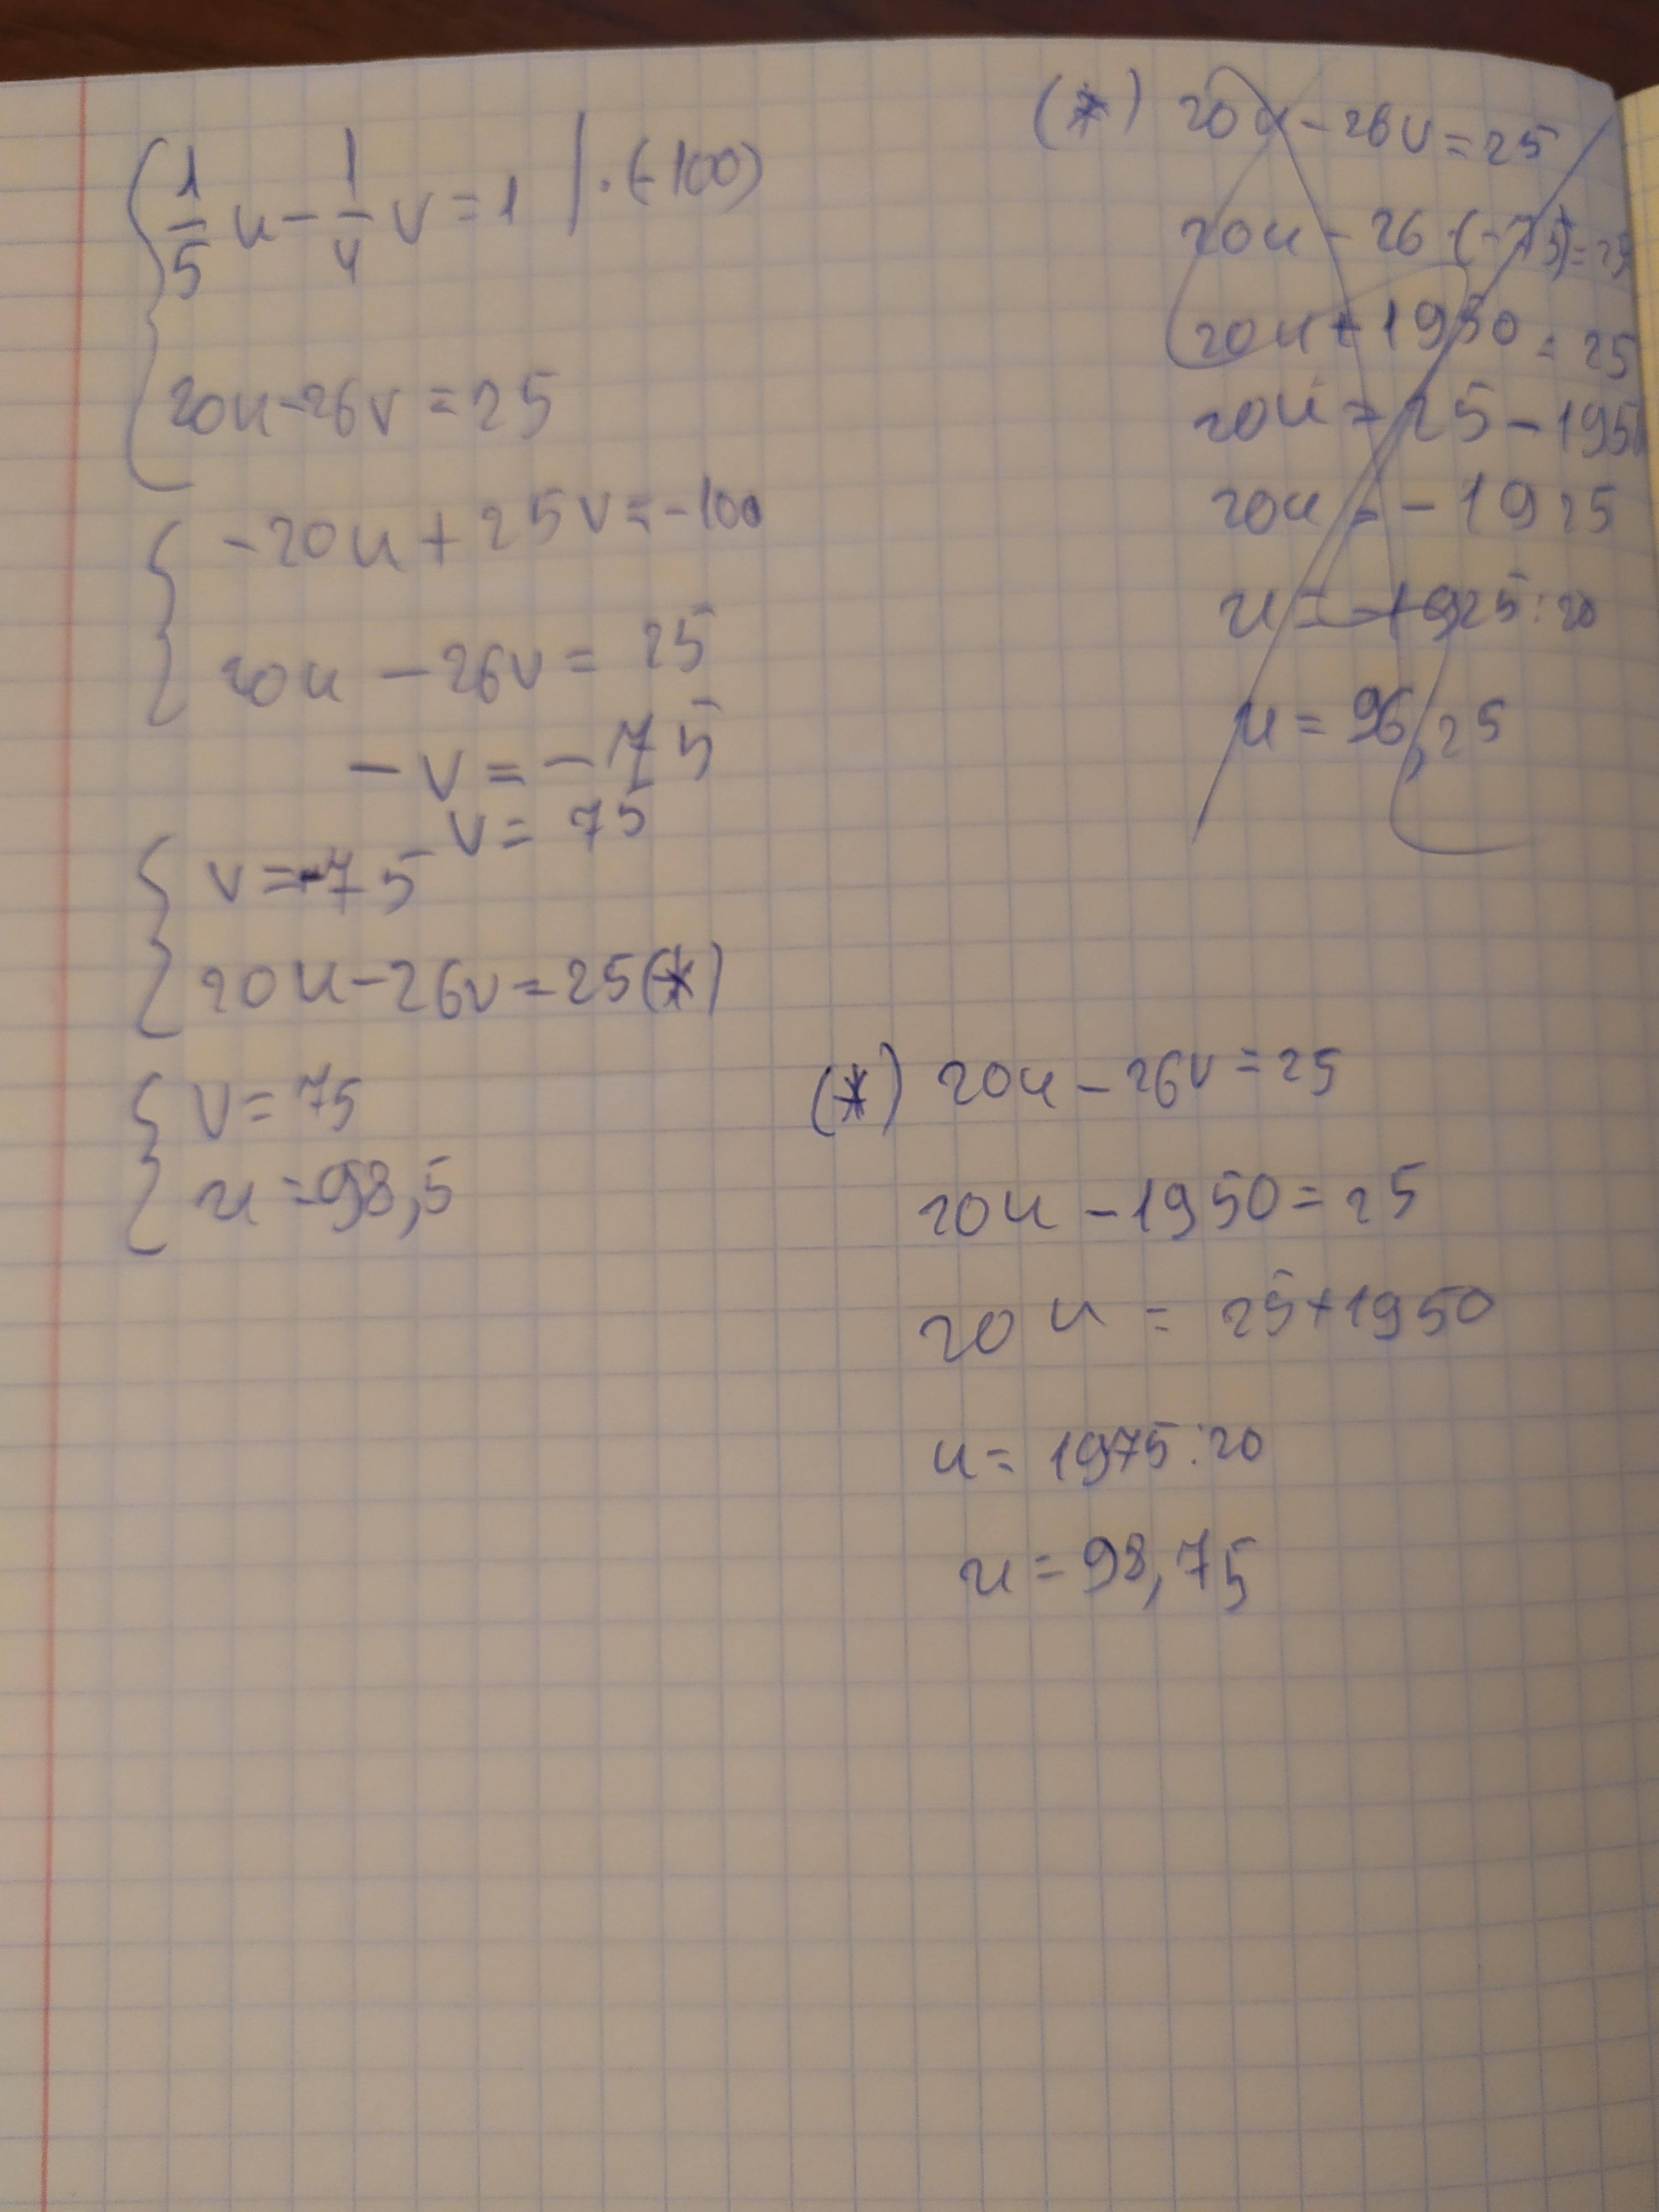 1/5 u - 1/4 v = 1 | · (-100)
20u - 26v = 25
-20u + 25v = -100
20u - 26v = 25
-v = -75
v = 75
v = -75
20u - 26v = 25 (*)
v = 75
u = 98,5
(*) 20u - 26v = 25
20u - 26 · (-75) = 25
20u + 1950 = 25
20u = 25 - 1950
20u = -1925
u = -1925 : 20
u = 96,25
(*) 20u - 26v = 25
20u - 1950 = 25
20u = 25 + 1950
u = 1975 : 20
u = 98,75